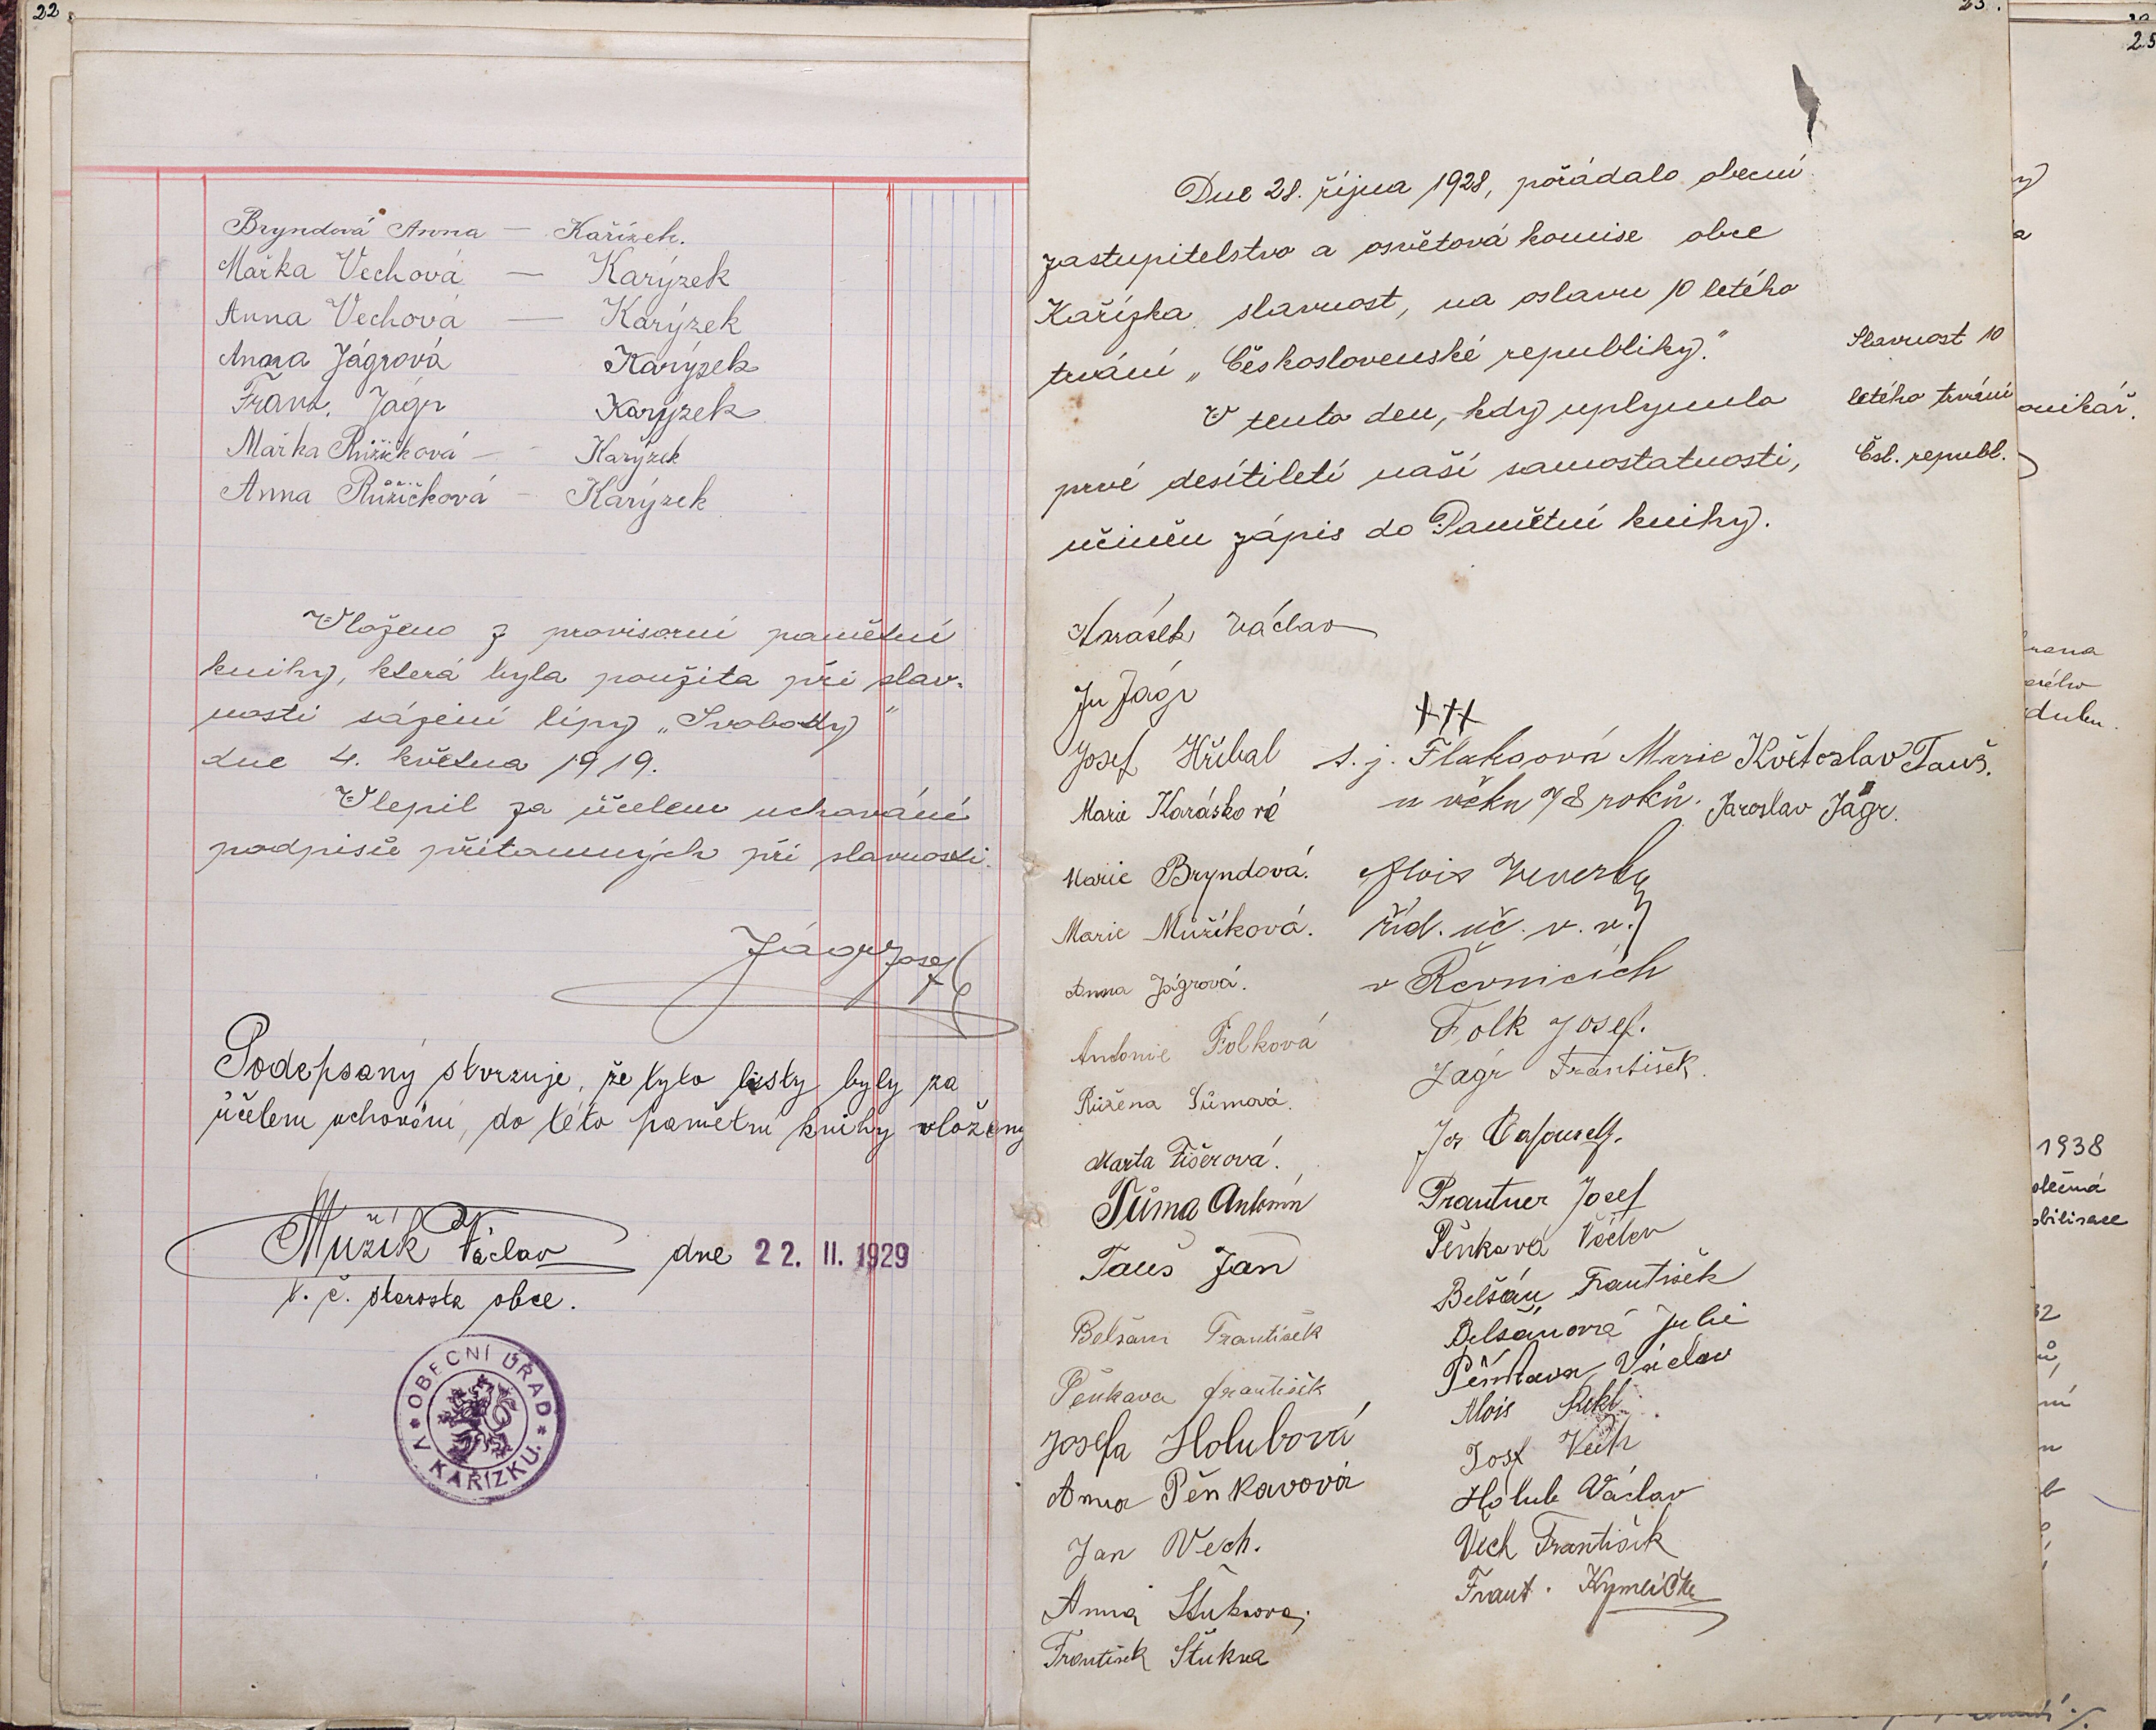 22
Bryndová Anna — Kařízek.
Mařka Vechová — Karýzek
Anna Vechová — Karýzek
Anna Jágrová Karýzek
Frant. Jágr Karýzek
Mařka Růžičková — Karýzek
Anna Růžičková — Karýzek
Vloženo z provisorní pamětní
knihy, která byla použita při slav-
nosti sázení lípy „Svobody"
dne 4. května 1919.
Vlepil za účelem uchování
podpisů přítomných při slavnosti.
Jágr Josef
Podepsaný stvrzuje, že tyto listy byly za
účelem uchování, do této pamětní knihy vloženy
Mužík Václav dne 22. II. 1929
t. č. starosta obce.
OBECNÍ ÚŘAD
V KAŘÍZKU.
23.
Dne 28. října 1928, pořádalo obecní
zastupitelstvo a osvětová komise obce
Kařízka slavnost, na oslavu 10 letého
trvání „Československé republiky."
V tento den, kdy uplynulo
prvé desítiletí naší samostatnosti,
učiněn zápis do Pamětní knihy.
Slavnost 10
letého trvání
Čsl. republ.
Karásek Václav
Jágr
Josef Hříbal
Marie Karásková
Marie Bryndová.
Marie Mužíková.
Anna Jágrová.
Antonie Folková
Růžena Tůmová.
Marta Fišerová.
Tůma Antonín
Tauš Jan
Belšán František
Pěnkava František
Josefa Holubová
Anna Pěnkavová
Jan Vech.
Anna
František Štukna
+++
s. j. Flaksová Marie Květoslav Tauš.
u věku 78 roků. Jaroslav Jágr.
Alois
říd. uč. v. v.
v Řevnicích
Folk Josef.
Jágr František.
Prantner Josef
Pěnkava Václav
Belšán František
Belšánová Julie
Pěnkava Václav
Alois
Josef Vech
Holub Václav
Vech František
Frant. Kymlička
25
onikář.
1938